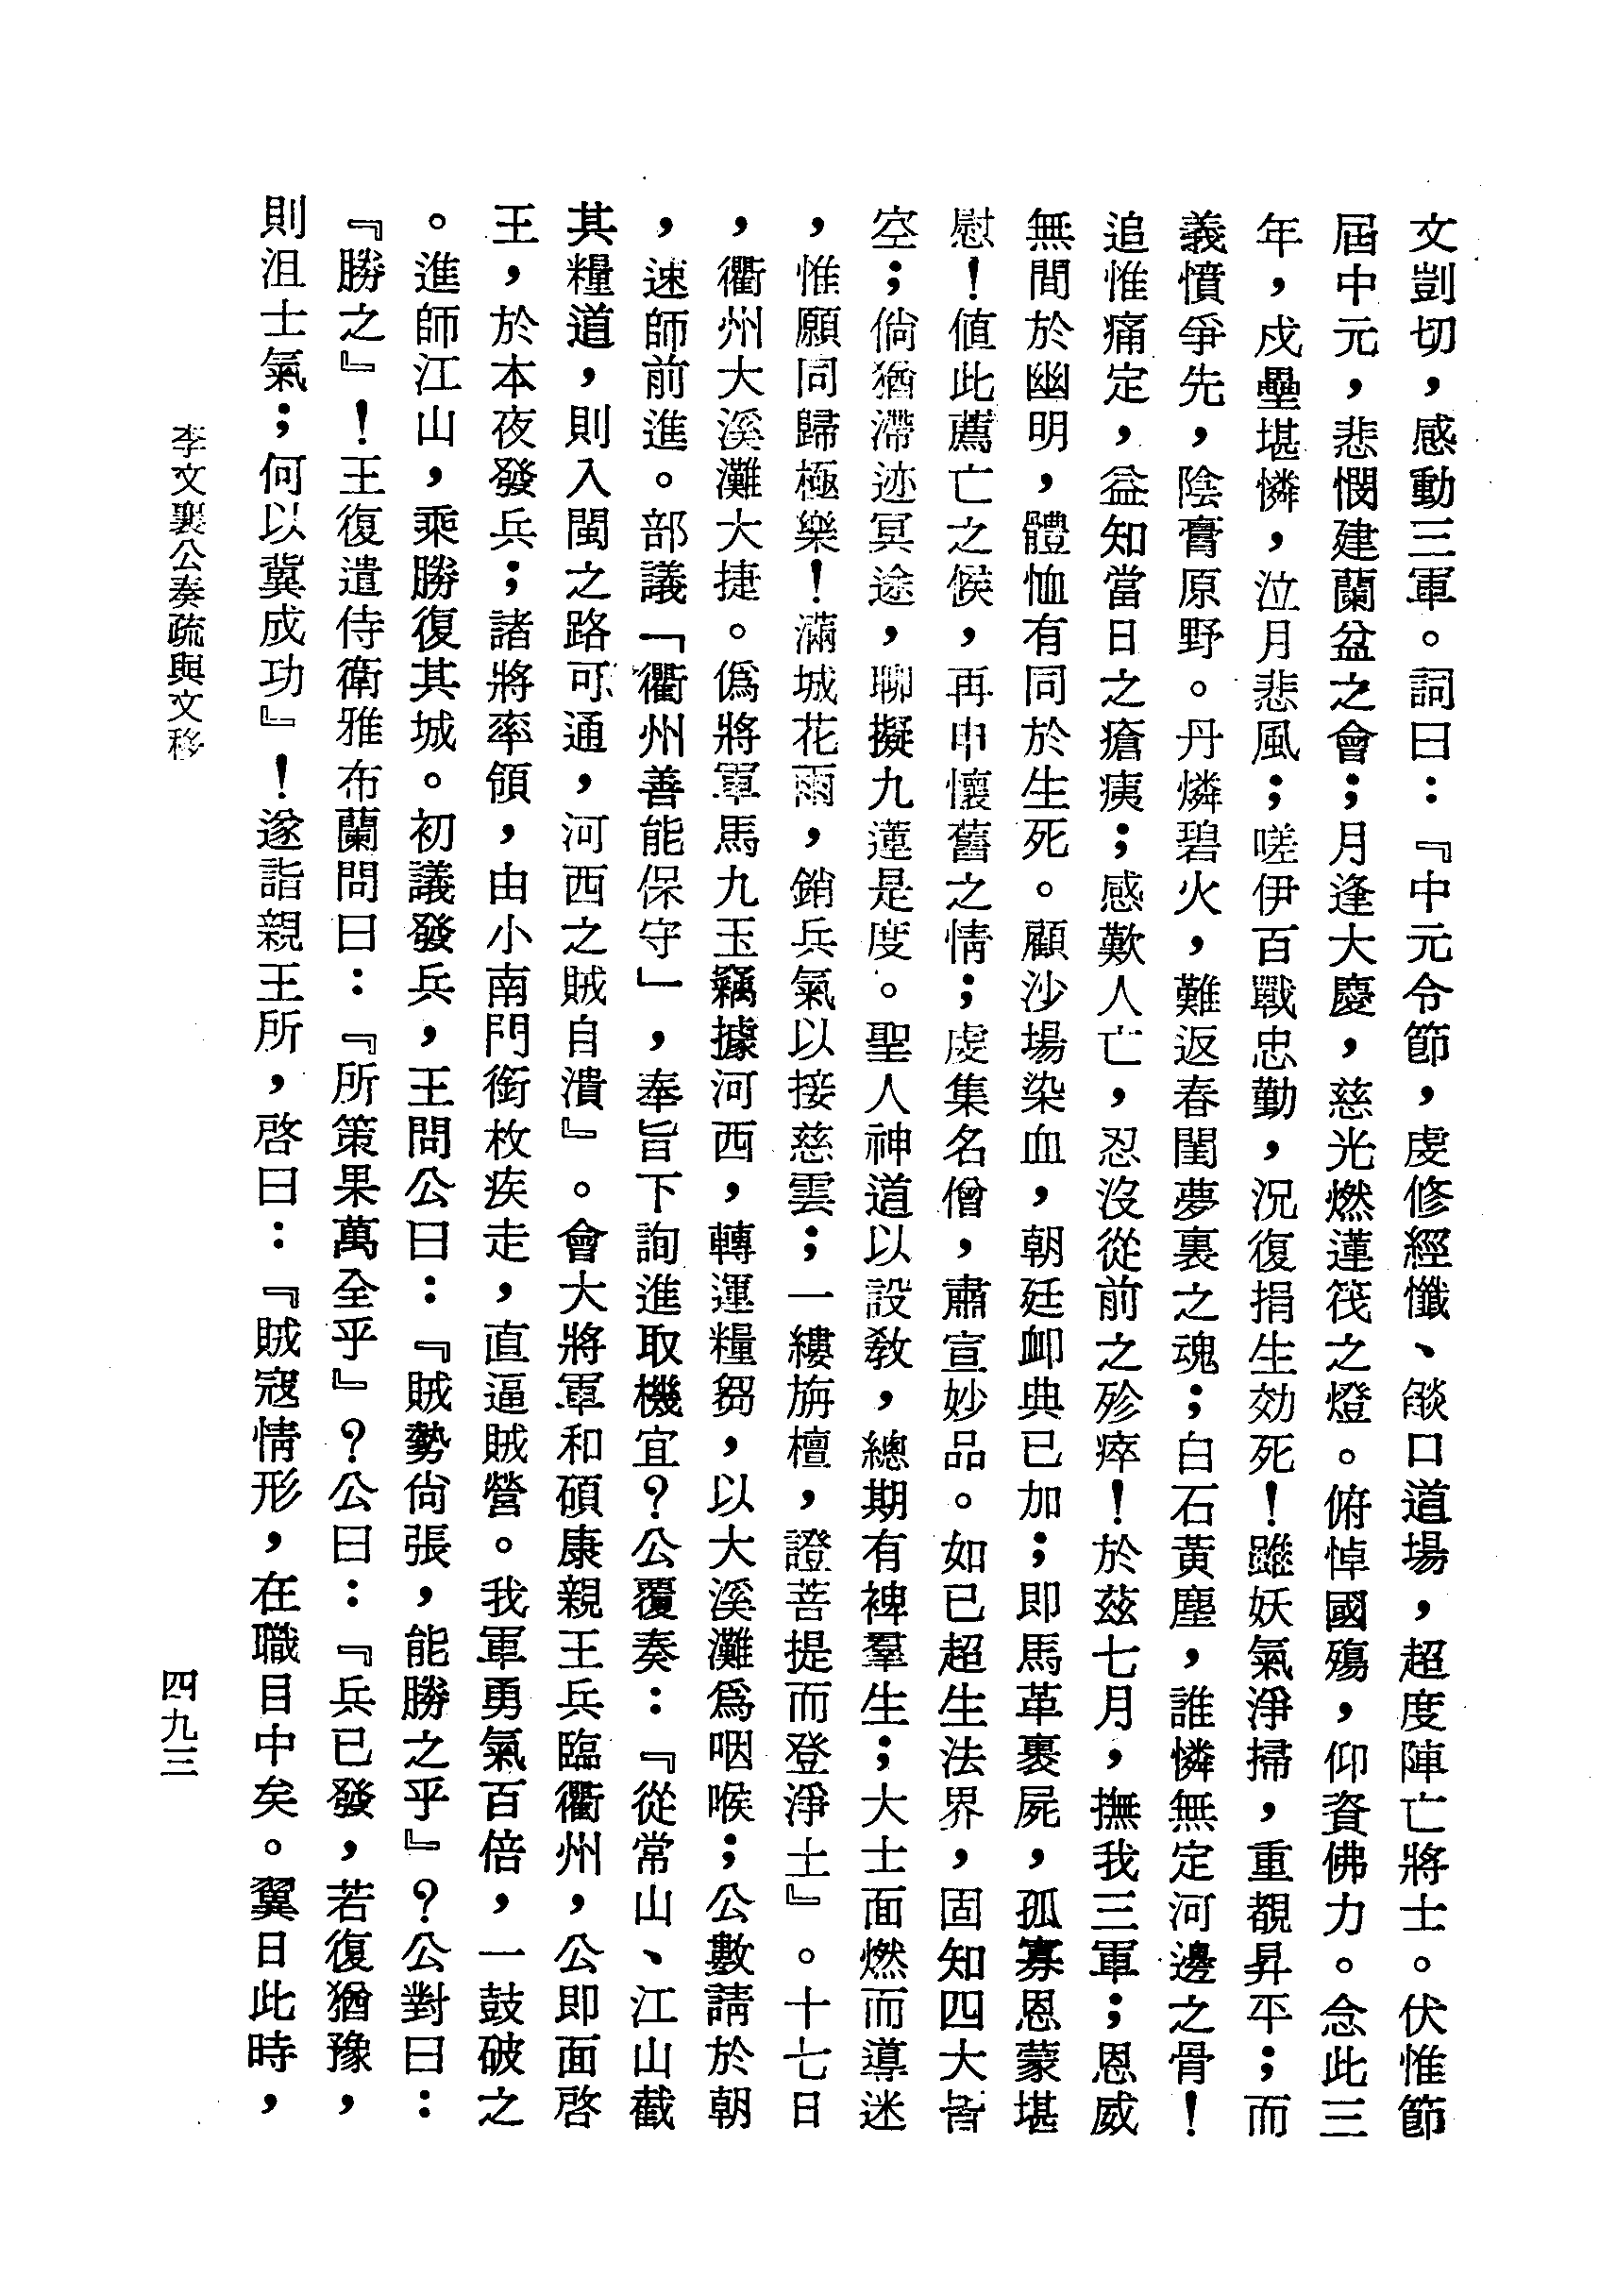 文剴切，感動三軍。詞曰：『中元令節，虔修經懺、燄口道場，超度陣亡將士。伏惟節
屆中元，悲憫建蘭盆之會；月逢大慶，慈光燃蓮筏之燈。俯悼國殤，仰資佛力。念此三
年，戍壘堪憐，泣月悲風；嗟伊百戰忠勤，況復捐生効死！雖妖氣淨掃，重覩昇平；而
義憤爭先，陰膏原野。丹燐碧火，難返春閨夢裏之魂；白石黃塵，誰憐無定河邊之骨！
追惟痛定，益知當日之瘡痍；感歎人亡，忍沒從前之殄瘁！於茲七月，撫我三軍；恩威
無間於幽明，體恤有同於生死。顧沙場染血，朝廷卹典已加；即馬革裹屍，孤寡恩蒙堪
慰！值此薦亡之候，再申懷舊之情；虔集名僧，肅宣妙品。如已超生法界，固知四大皆
空；倘猶滯迹冥途，聊擬九蓮是度。聖人神道以設敎，總期有裨羣生；大士面燃而導迷
，惟願同歸極樂！滿城花雨，銷兵氣以接慈雲；一縷旃檀，證菩提而登淨土』。十七日
，衢州大溪灘大捷。僞將軍馬九玉竊據河西，轉運糧芻，以大溪灘爲咽喉；公數請於朝
，速師前進。部議「衢州善能保守」，奉旨下詢進取機宜？公覆奏：『從常山、江山截
其糧道，則入閩之路可通，河西之賊自潰』。會大將軍和碩康親王兵臨衢州，公即面啓
王，於本夜發兵；諸將率領，由小南門銜枚疾走，直逼賊營。我軍勇氣百倍，一鼓破之
。進師江山，乘勝復其城。初議發兵，王問公曰：『賊勢尙張，能勝之乎』？公對曰：
『勝之』！王復遣侍衛雅布蘭問曰：『所策果萬全乎』？公曰：『兵已發，若復猶豫，
則沮士氣；何以冀成功』！遂詣親王所，啓曰：『賊寇情形，在職目中矣。翼日此時，
李文襄公奏疏與文移
四九三